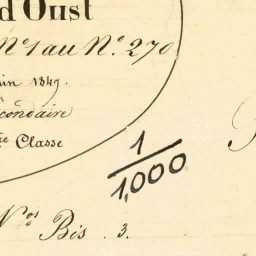 d'Oust
N° 1 au N° 270
in 1849.
condaire
Classe
1/1,000
Nos Bis. 3.